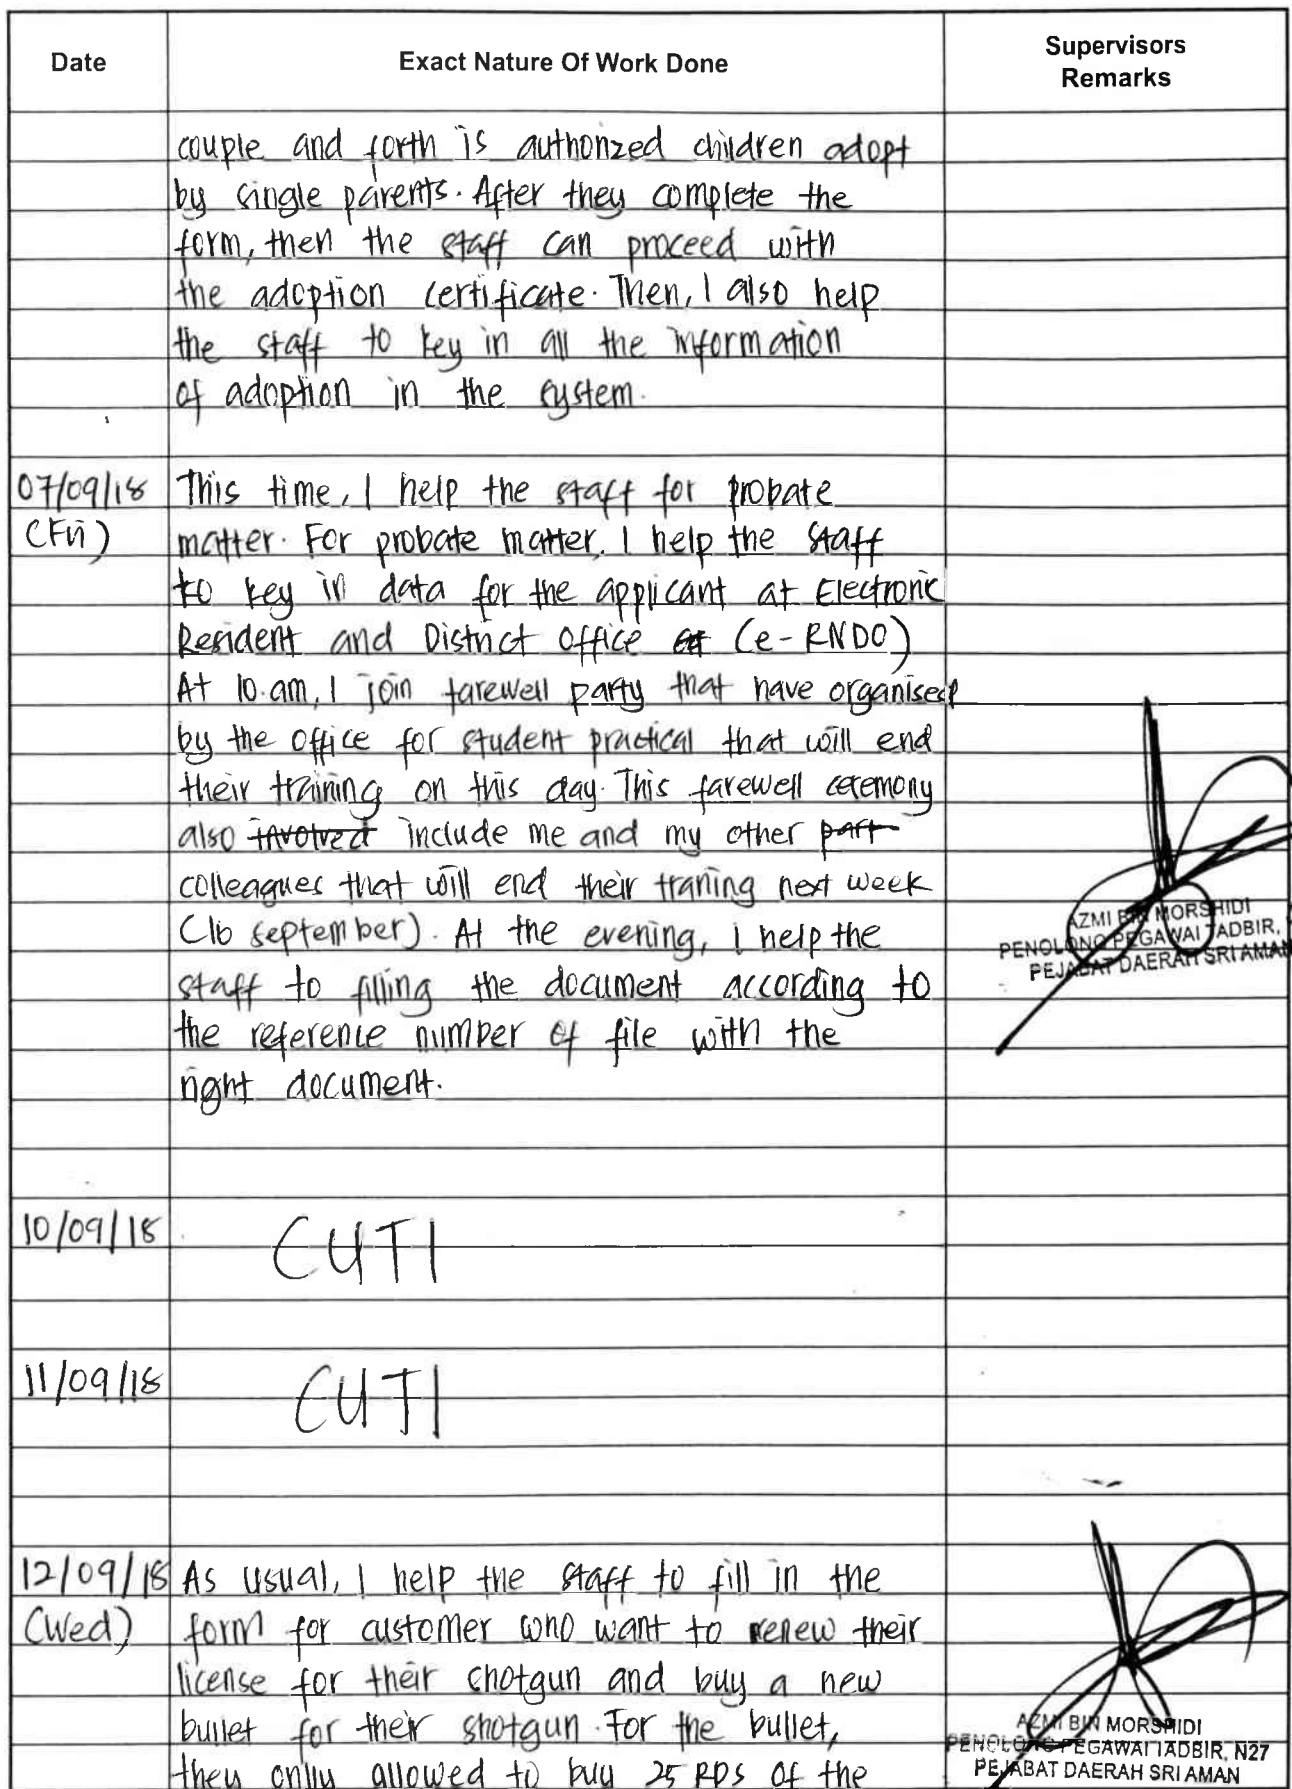 Date Exact Nature Of Work Done Supervisors Remarks
couple and forth is authorized children adopt
by single parents. After they complete the
form, then the staff can proceed with
the adoption certificate. Then, I also help
the staff to key in all the information
of adoption in the system.
07/09/18 This time, I help the staff for probate
(Fri) matter. For probate matter, I help the staff
to key in data for the applicant at Electronic
Resident and District Office (e-RNDO)
At 10.am, I join farewell party that have organised
by the office for student practical that will end
their training on this day. This farewell ceremony
also involved include me and my other part
colleagues that will end their traning next week
(16 september). At the evening, I help the
AZMI BIN MORSHIDI
PENOLONG PEGAWAI TADBIR,
PEJABAT DAERAH SRI AMAN
staff to filling the document according to
the reference number of file with the
right document.
10/09/18 CUTI
11/09/18 CUTI
12/09/18 As usual, I help the staff to fill in the
(Wed) form for customer who want to renew their
license for their shotgun and buy a new
bullet for their shotgun. For the bullet,
they only allowed to buy 25 RDS of the
AZMI BIN MORSHIDI
PENOLONG PEGAWAI TADBIR, N27
PEJABAT DAERAH SRI AMAN